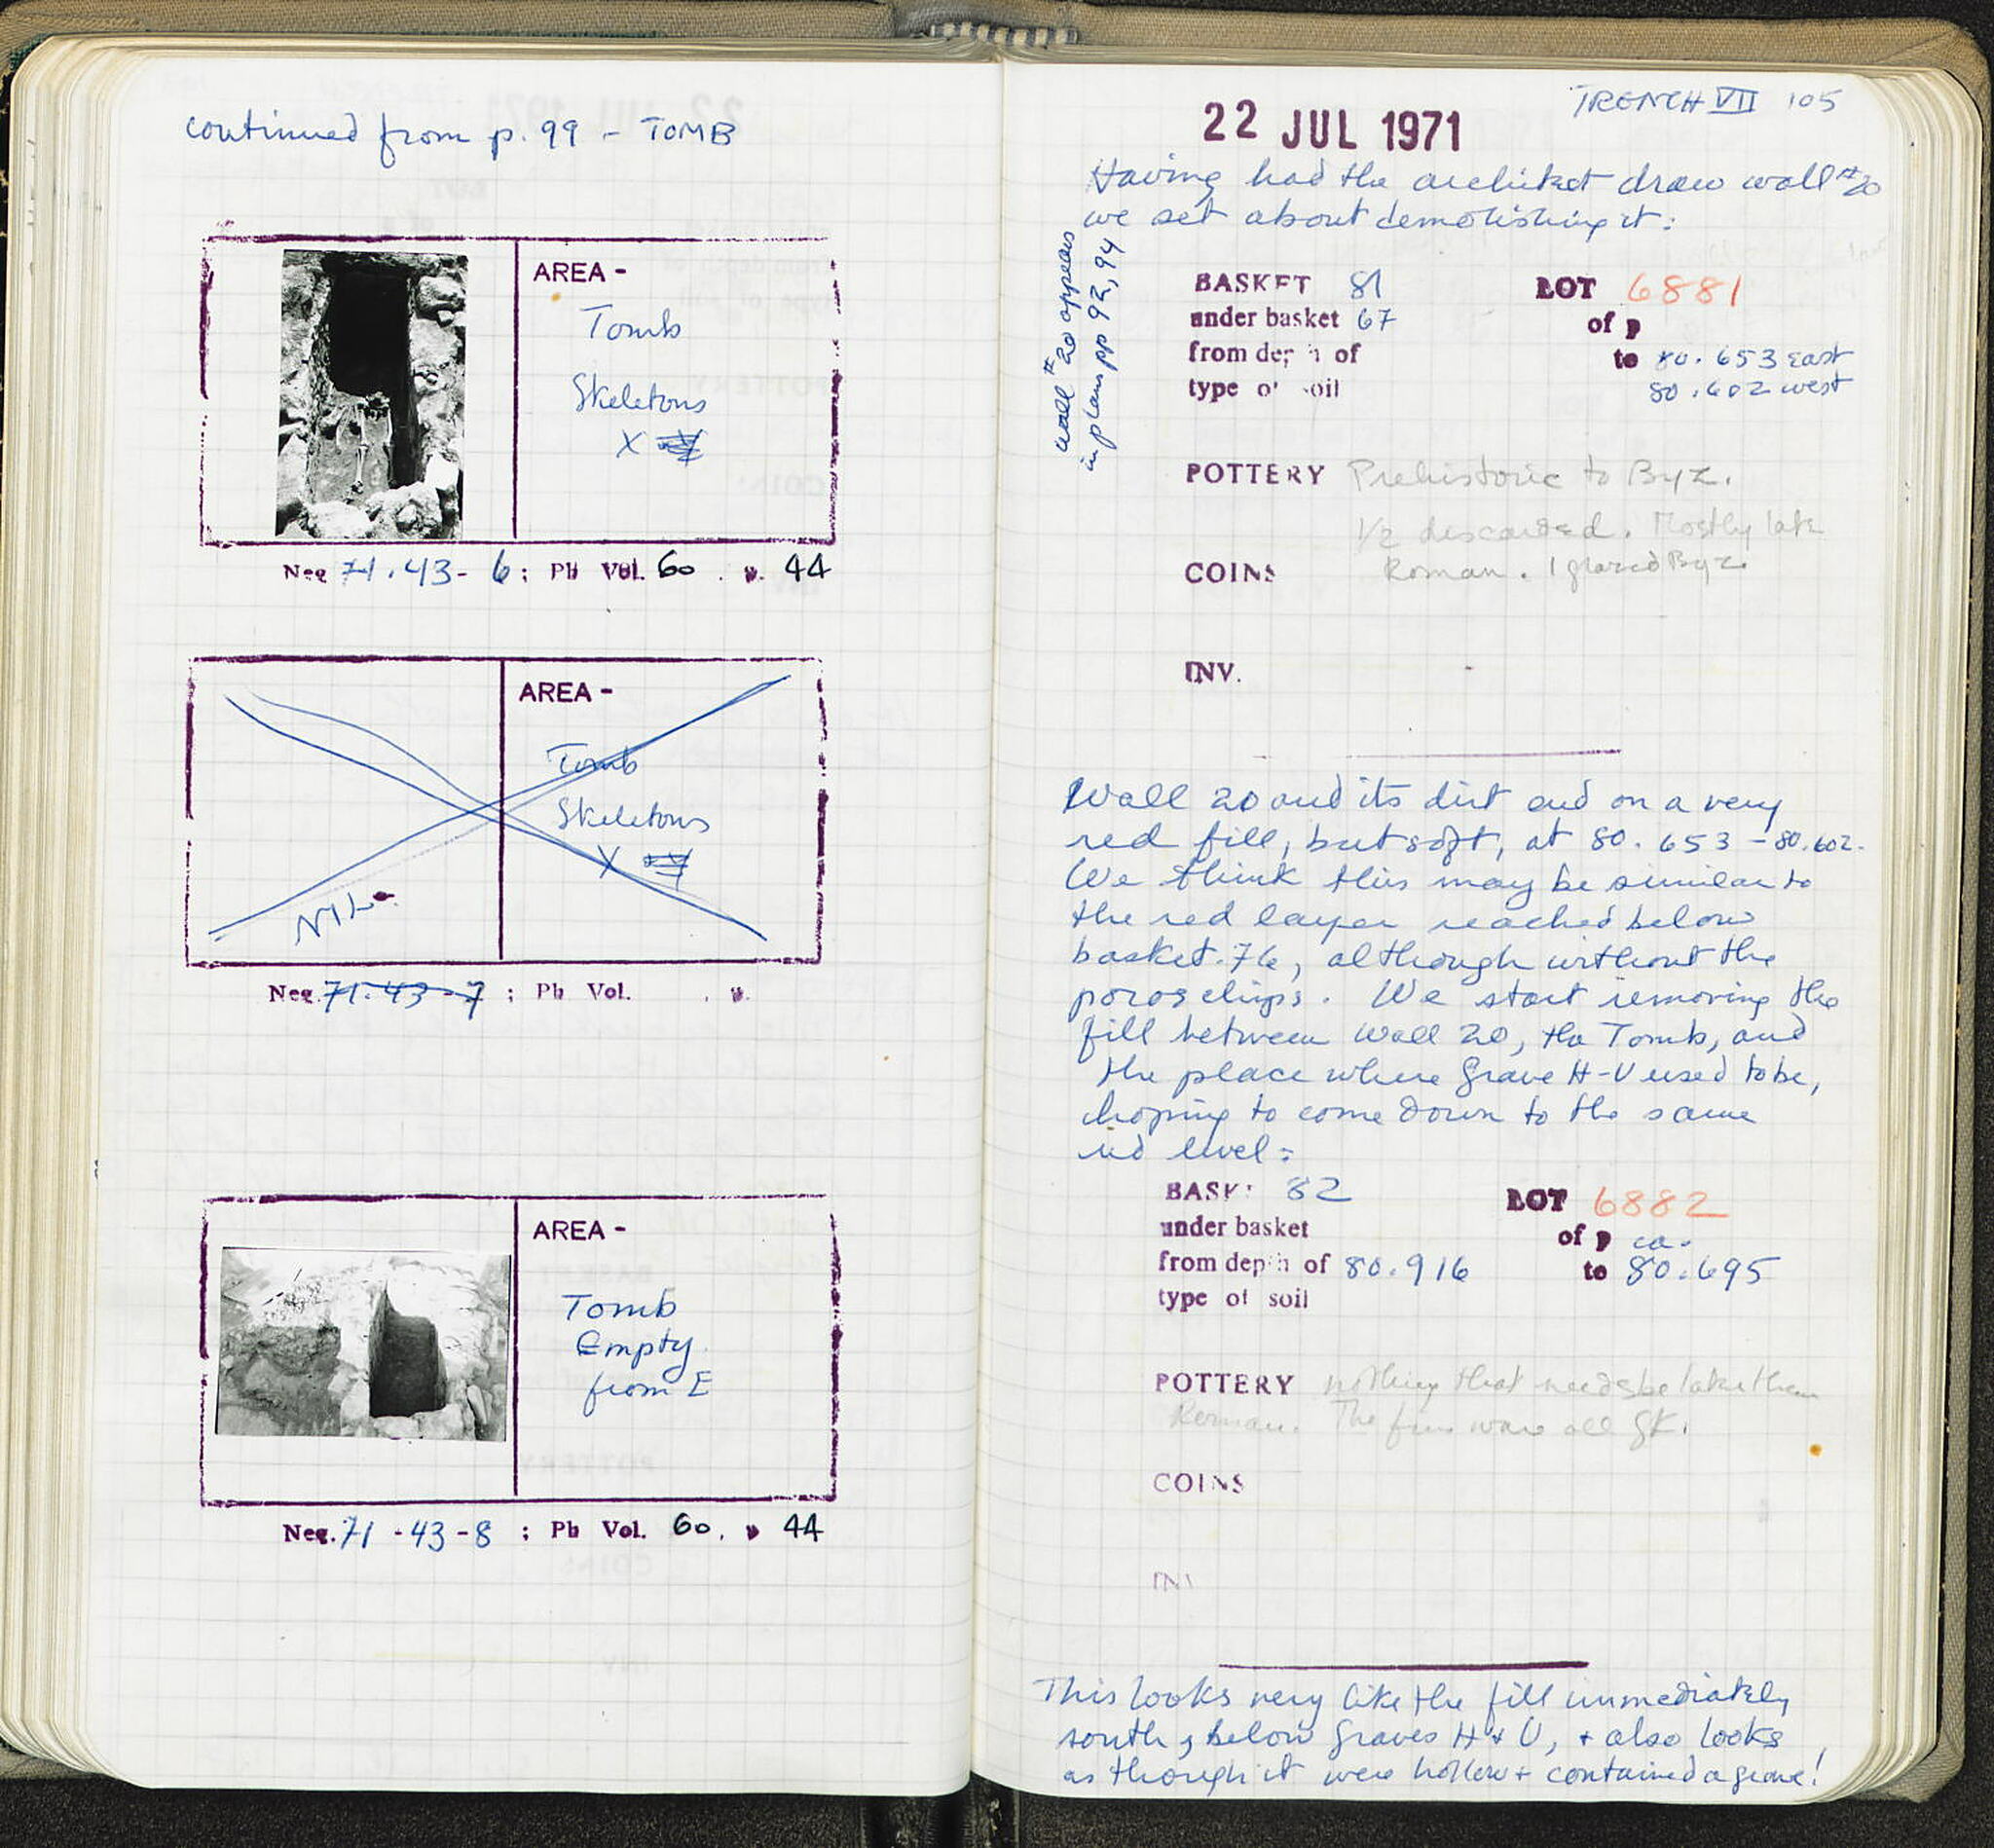 continued from p. 99 - TOMB
AREA -
Tomb
Skeletons
X
Neg 71.43-6; Ph Vol. 60. p. 44
AREA -
Tomb
Skeletons
X
NIL
Neg. 71.43-7; Ph Vol. . p.
AREA -
Tomb
Empty
from E
Neg. 71-43-8; Ph Vol. 60. p 44
TRENCH VII 105
22 JUL 1971
Having had the architect draw wall #20
we set about demolishing it:
wall #20 appears
in plans pp 92, 94
BASKET 81 LOT 6881
under basket 67 of p
from depth of to 80.653 east
type of soil 80.602 west
POTTERY Prehistoric to Byz.
1/2 discarded. Mostly late
COINS Roman. 1 glazed Byz.
INV.
Wall 20 and its dirt end on a very
red fill, but soft, at 80.653 - 80.602.
We think this may be similar to
the red layer reached below
basket 76, although without the
poros chips. We start removing the
fill between Wall 20, the Tomb, and
the place where Grave H-U used to be,
hoping to come down to the same
red level:
BASK 82 LOT 6882
under basket of p ca.
from depth of 80.916 to 80.695
type of soil
POTTERY nothing that needs be later than
Roman. The fine ware all Gk.
COINS
INV
This looks very like the fill immediately
south, below Graves H + U, + also looks
as though it were hollow + contained a grave!